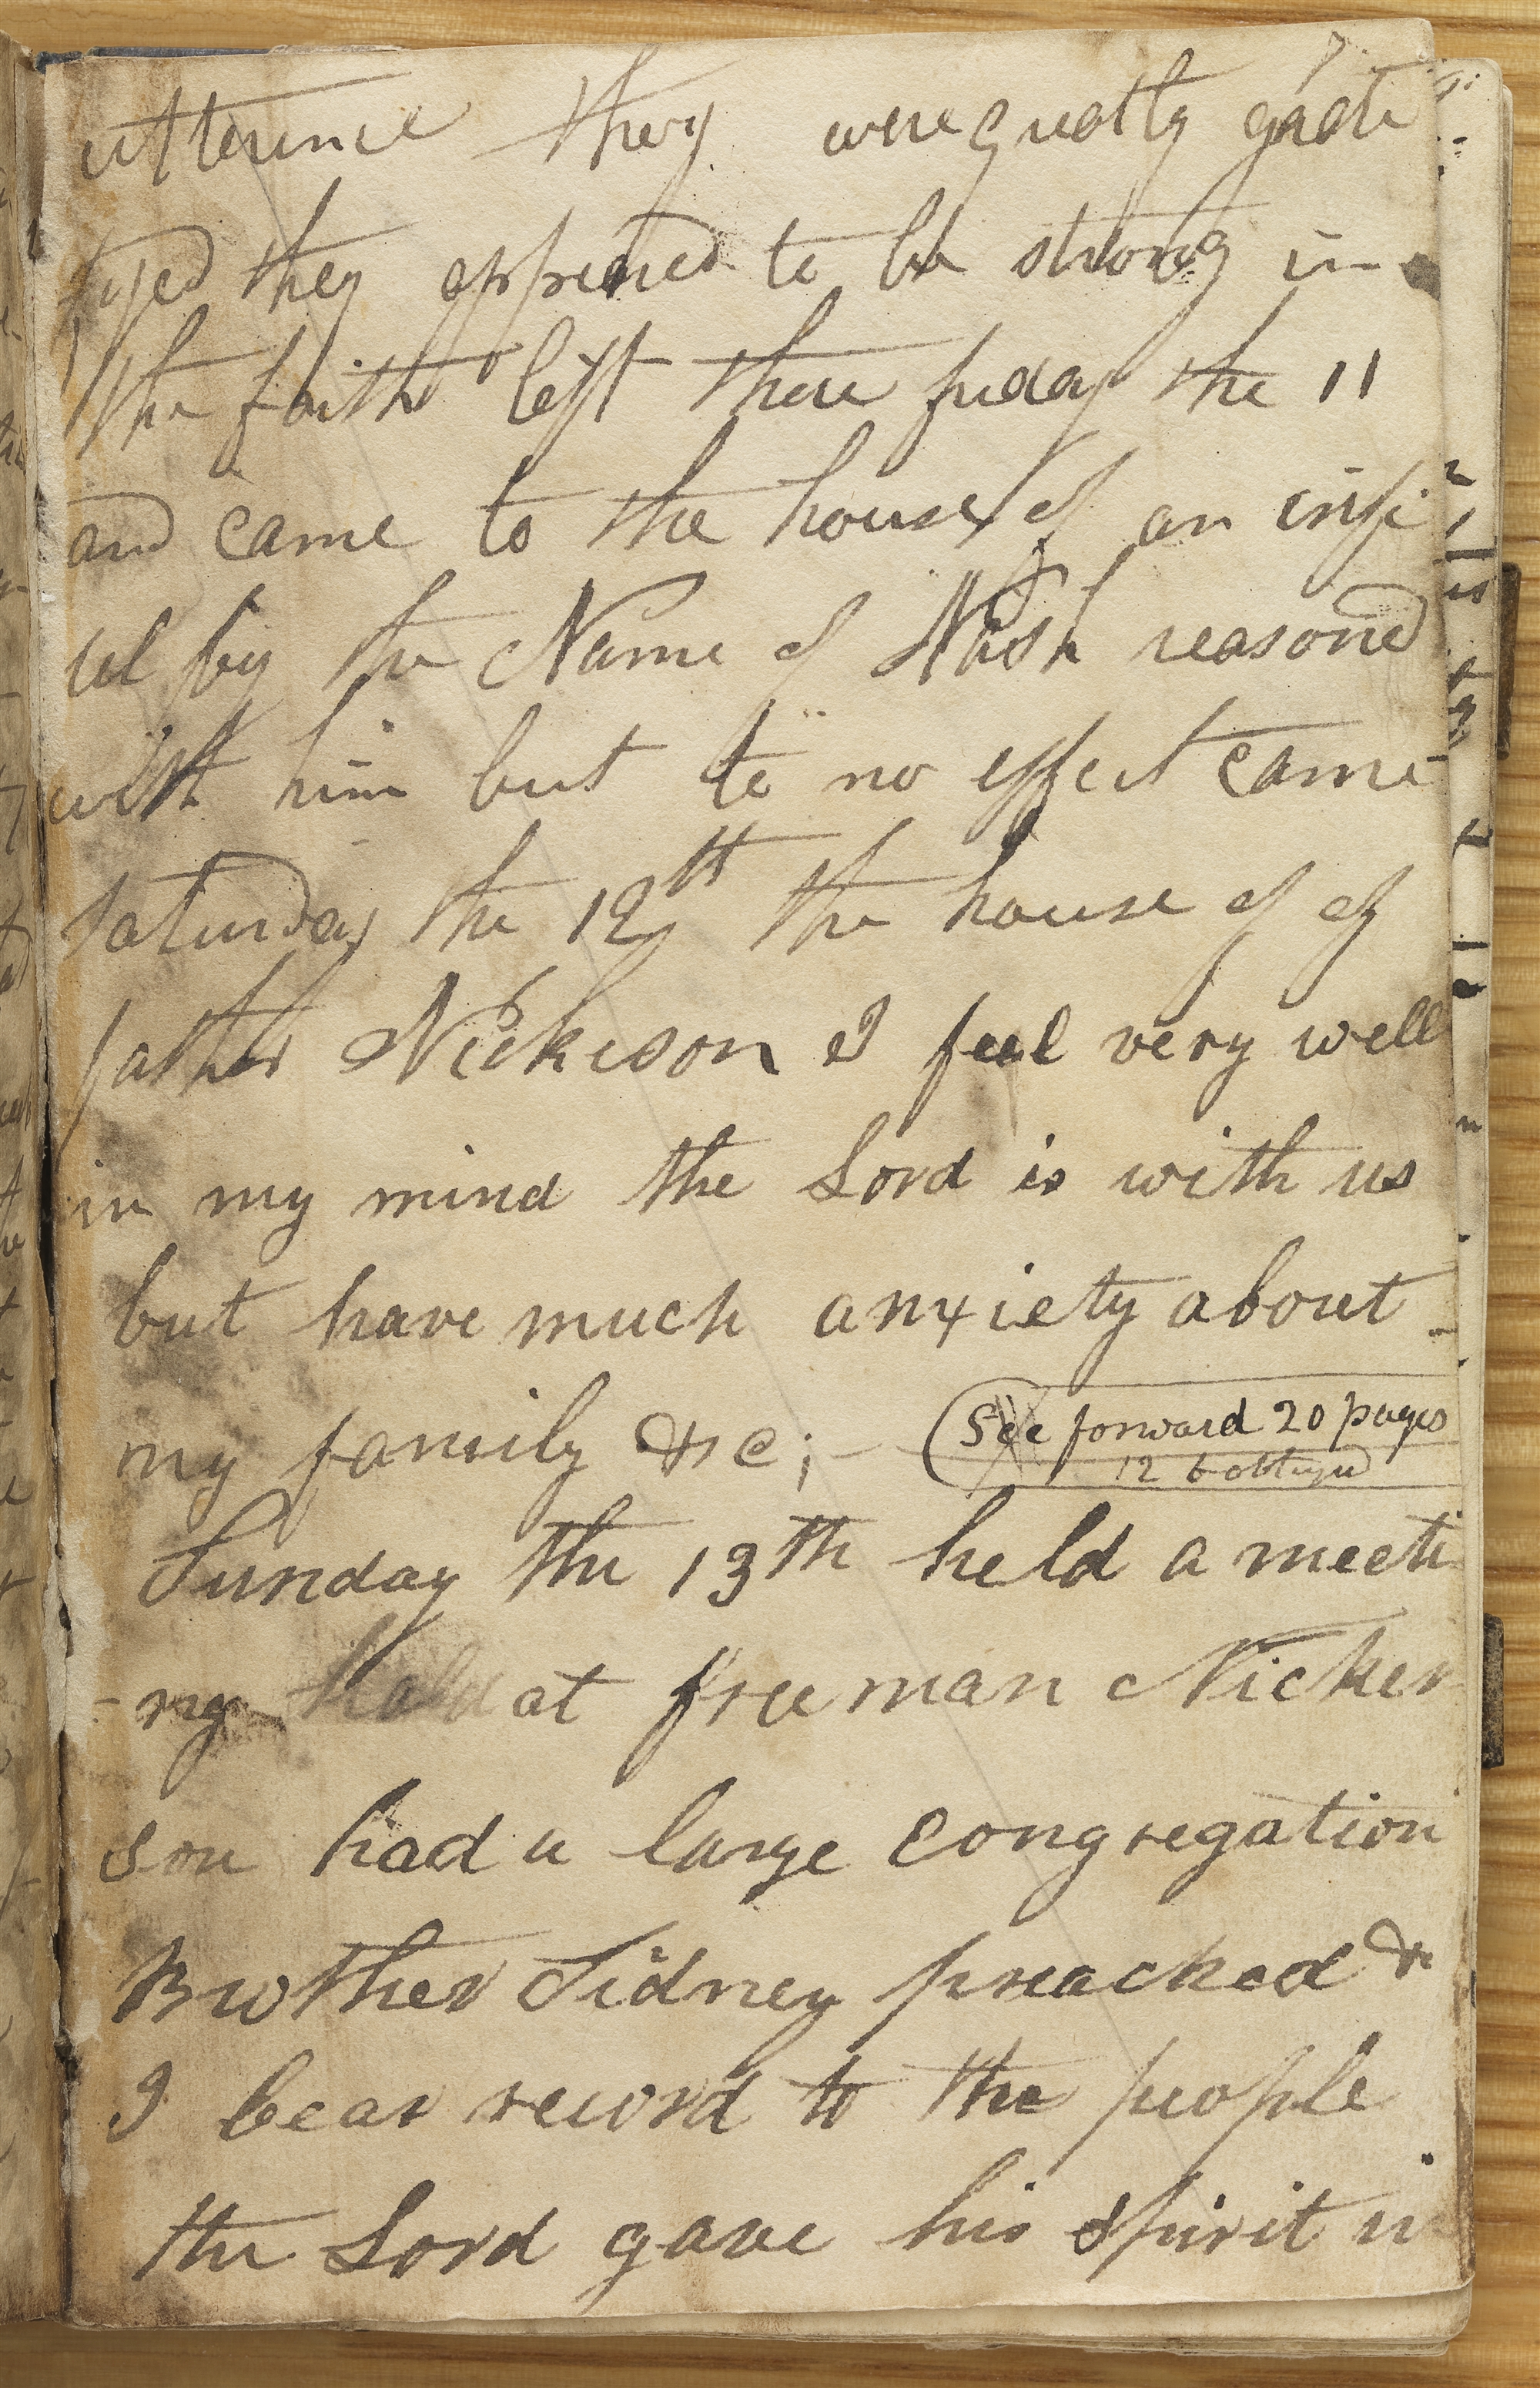 7
utterence they were greatly grati
fyed they appeared to be strong in
the faith left there friday the 11
and came to the house of an infi
del by the Name of Nash reasond
with him but to no effect came
Saturday the 12th the house of of
father Nickeson I feel very well
in my mind the Lord is with us
but have much anxiety about
my family &c;—
See forward 20 pages
Sunday the 13th held a meeti
-ng held at freeman Nicker
son had a large congregation
Brother Sidney preached &
I bear record to the people
the Lord gave his spirit in